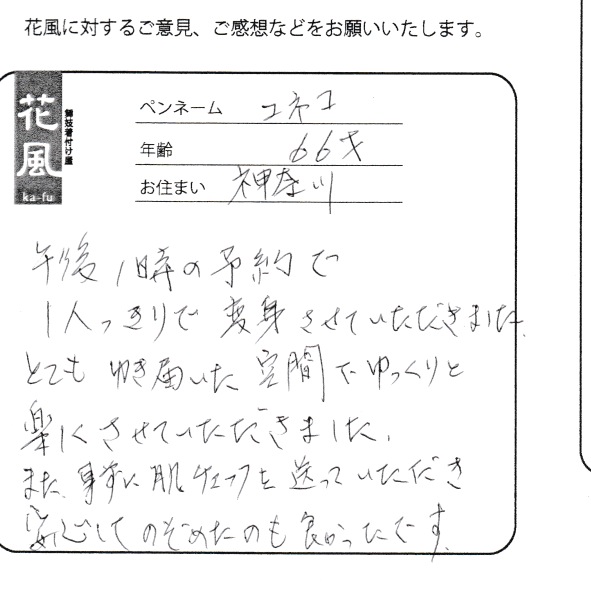 花風に対するご意見、ご感想などをお願いいたします。
花風
舞妓着付け屋
ka-fu
ペンネーム コネコ
年齢 66才
お住まい 神奈川
午後1時の予約で
1人っきりで変身させていただきました。
とても ゆき届いた 空間でゆっくりと
楽しくさせていただきました。
また、事前に肌チェックを送っていただき
安心してのぞめたのも良かったです。